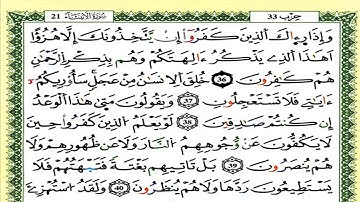 21 سُورَةُ الْأَنْبِيَاءِ حزب 33
وَإِذَا رَءَاكَ الَّذِينَ كَفَرُوا إِنْ يَتَّخِذُونَكَ إِلَّا هُزُؤًا
أَهَٰذَا الَّذِي يَذْكُرُ ءَالِهَتَكُمْ وَهُم بِذِكْرِ الرَّحْمَٰنِ
هُمْ كَافِرُونَ 36 خُلِقَ الْإِنسَانُ مِنْ عَجَلٍ سَأُوْرِيكُمْ
ءَايَاتِي فَلَا تَسْتَعْجِلُونِ 37 وَيَقُولُونَ مَتَىٰ هَٰذَا الْوَعْدُ
إِن كُنتُمْ صَادِقِينَ 38 لَوْ يَعْلَمُ الَّذِينَ كَفَرُوا حِينَ
لَا يَكُفُّونَ عَن وُجُوهِهِمُ النَّارَ وَلَا عَن ظُهُورِهِمْ وَلَا
هُمْ يُنصَرُونَ 39 بَلْ تَأْتِيهِم بَغْتَةً فَتَبْهَتُهُمْ فَلَا
يَسْتَطِيعُونَ رَدَّهَا وَلَا هُمْ يُنظَرُونَ 40 وَلَقَدُ اسْتُهْزِئَ